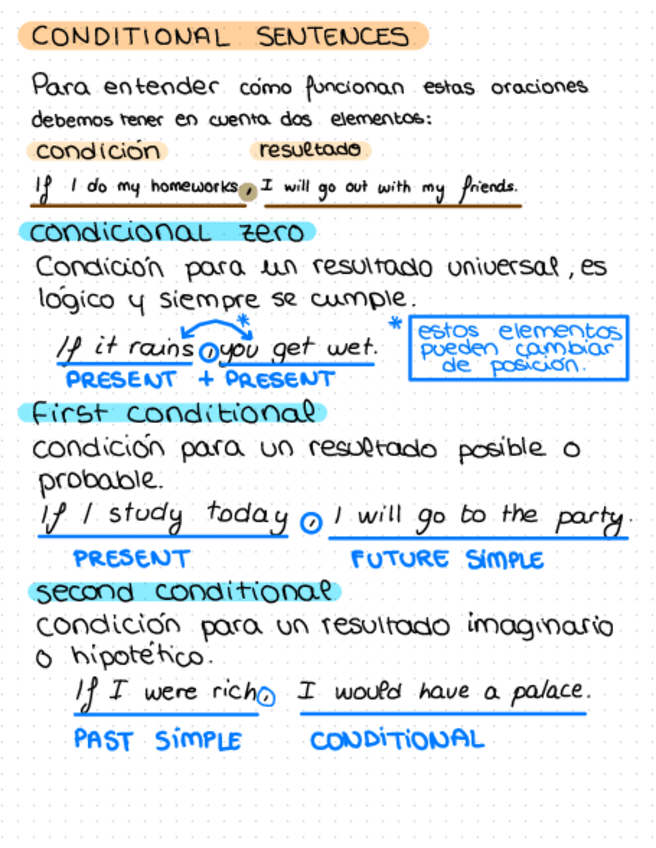 CONDITIONAL SENTENCES
Para entender cómo funcionan estas oraciones
debemos tener en cuenta dos elementos:
condición resultado
If I do my homeworks, I will go out with my friends.
condicional zero
Condición para un resultado universal, es
lógico y siempre se cumple.
*
If it rains, you get wet.
PRESENT + PRESENT
* estos elementos
pueden cambiar
de posición.
First conditional
condición para un resultado posible o
probable.
If I study today, I will go to the party.
PRESENT FUTURE SIMPLE
second conditional
condición para un resultado imaginario
o hipotético.
If I were rich, I would have a palace.
PAST SIMPLE CONDITIONAL